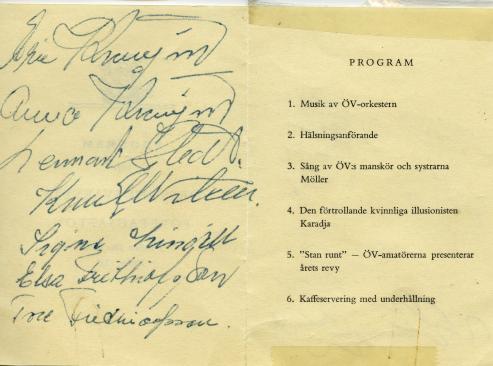 Anna
Lennart
Signe
Elsa Frithiofson
Ture Fredricsson.
PROGRAM
1. Musik av ÖV-orkestern
2. Hälsningsanförande
3. Sång av ÖV:s manskör och systrarna
Möller
4. Den förtrollande kvinnliga illusionisten
Karadja
5. "Stan runt" — ÖV-amatörerna presenterar
årets revy
6. Kaffeservering med underhållning